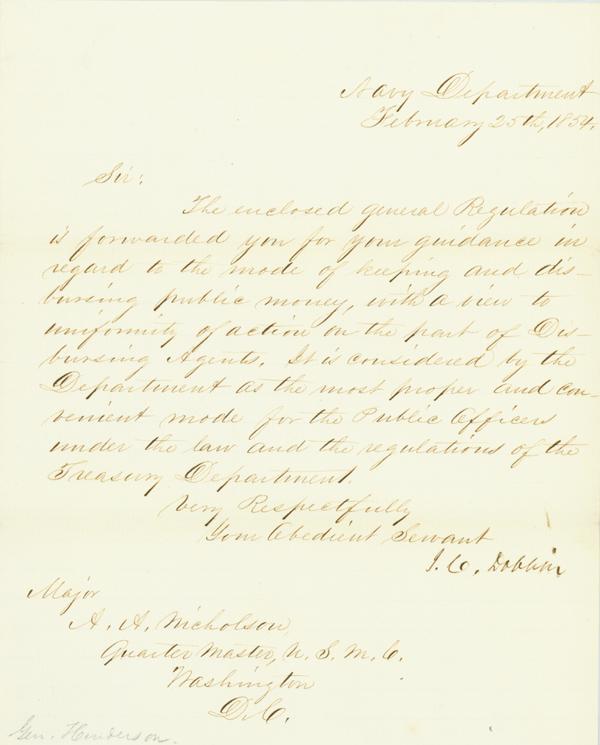 Navy Department
February 25th, 1854.
Sir:
The enclosed general Regulation
is forwarded you for your guidance in
regard to the mode of keeping and dis-
bursing public money, with a view to
uniformity of action on the part of Dis-
bursing Agents. It is considered by the
Department as the most proper and con-
venient mode for the Public Officers
under the law and the regulations of the
Treasury Department.
Very Respectfully
Your Obedient Servant
J. C. Dobbin
Major
A. A. Nicholson,
Quarter Master, U. S. M. C.
Washington
D.C.
Gen. Henderson.